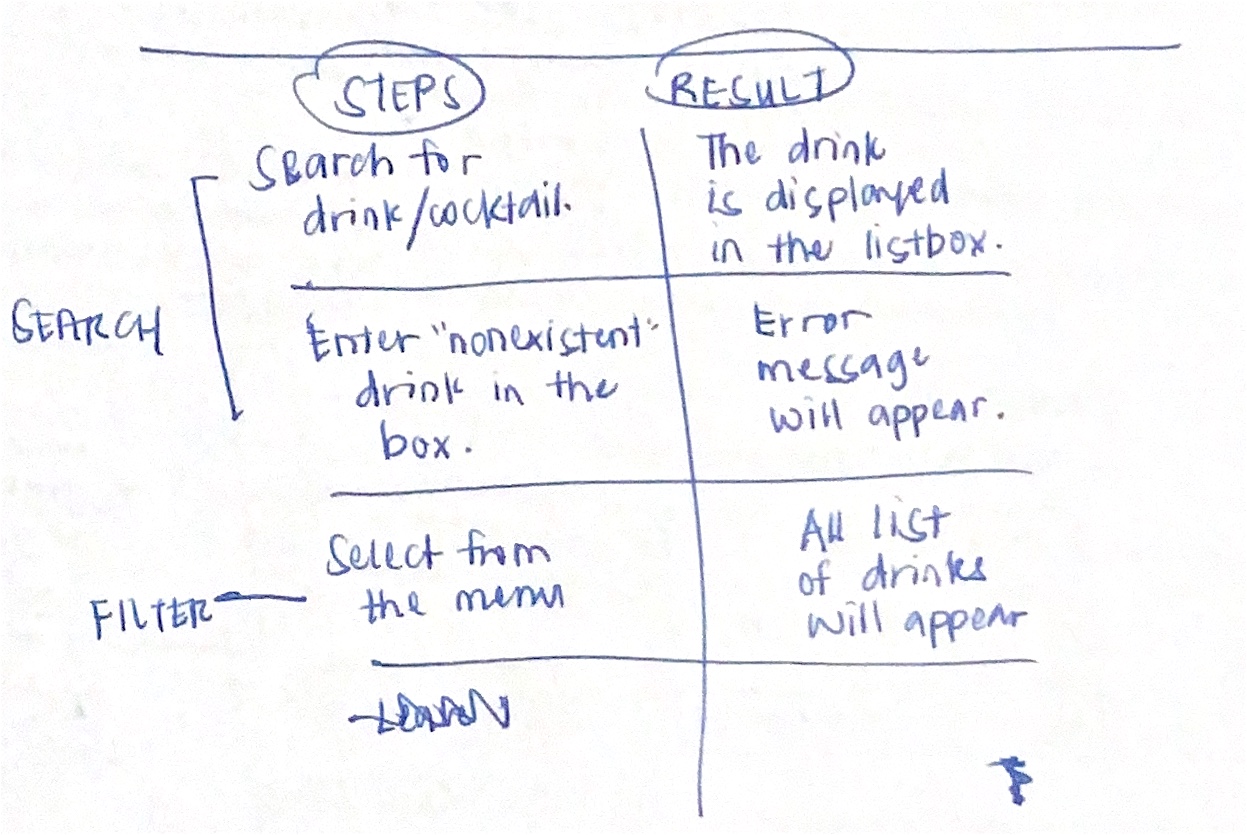 STEPS RESULT
Search for
drink/cocktail.
The drink
is displayed
in the listbox.
SEARCH
Enter "nonexistent"
drink in the
box.
Error
message
will appear.
FILTER
Select from
the menu
All list
of drinks
will appear